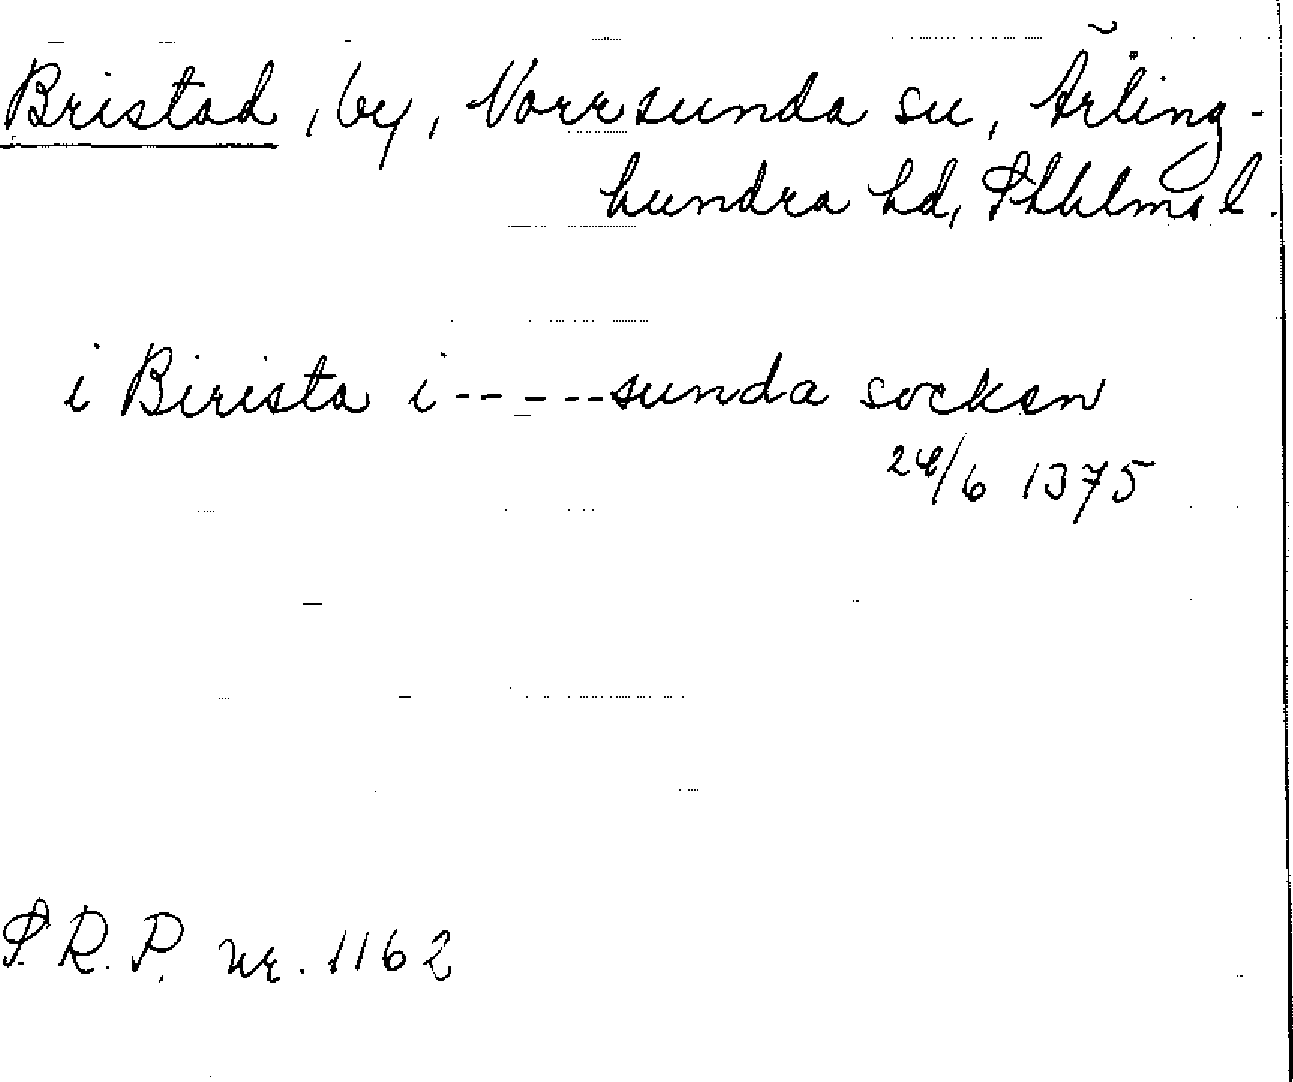 Bristad, by, Norrsunda sn, Ärling-
hundra hd, Sthlms l.
i Birista i-----sunda sockan
24/6 1375
S.R.P. nr. 1162